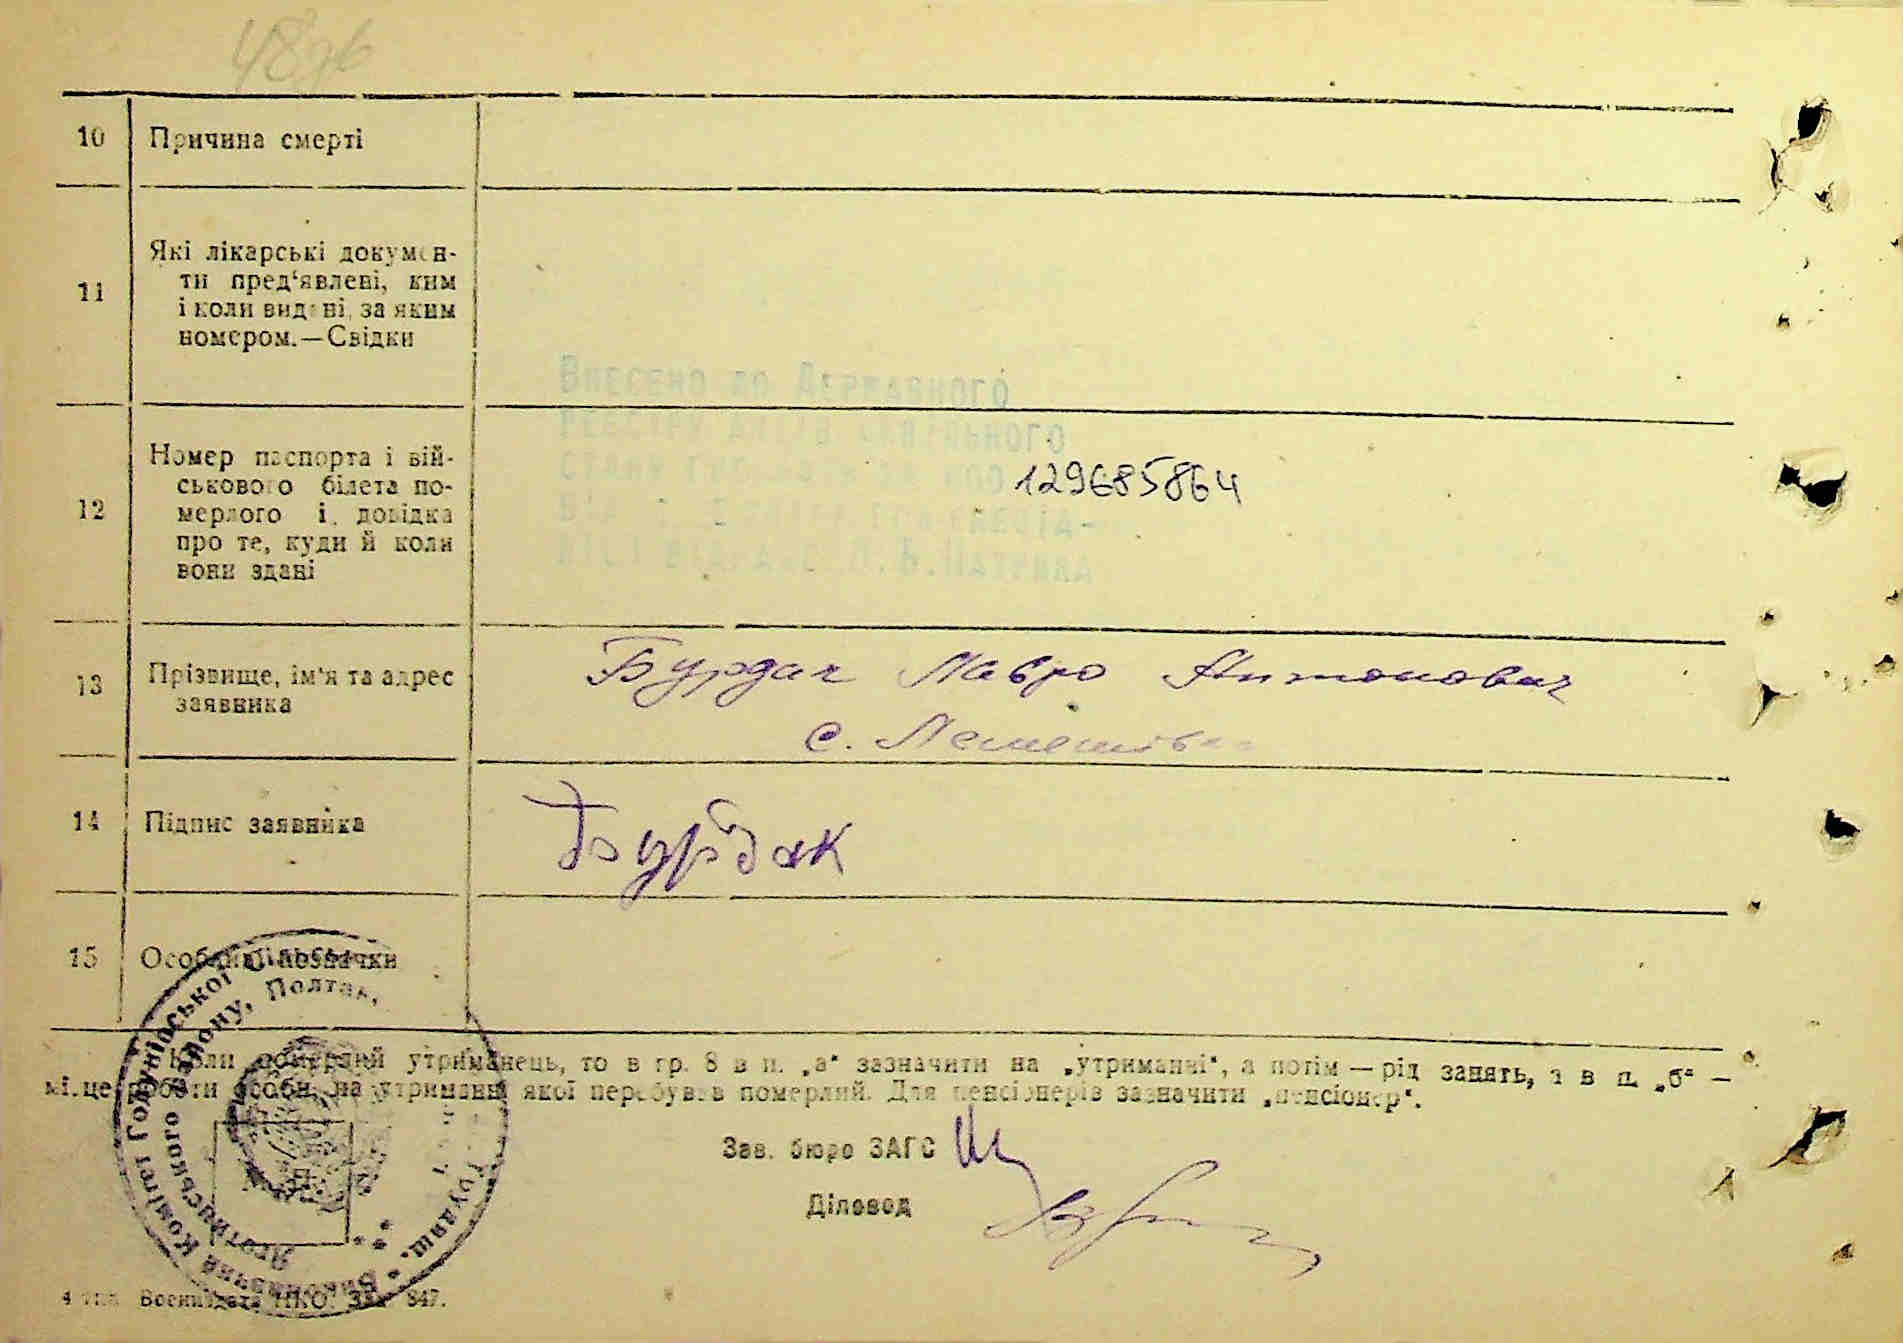 10
Причина смерті
11
Які лікарські докумен-
ти пред‘явлені, ким
і коли видані, за яким
номером.—Свідки
Внесено до Державного
реєстру актів цивільного
стану громадян
129685864
12
Номер паспорта і вій-
ськового білета по-
мерлого і довідка
про те, куди й коли
вони здані
13
Прізвище, ім‘я та адрес
заявника
Бурдач Лавро Антонович
с.
14
Підпис заявника
Бурдак
15
Особливі позначки
Коли померлий утриманець, то в гр. 8 в п. „а“ зазначити на „утриманні“, а потім — рід занять, а в п. „б“ —
місце роботи особи, на утриманні якої перебував померлий. Для пенсіонерів зазначити „пенсіонер“.
Зав. бюро ЗАГС
Діловод
Виконавчий Комітет Годунівської Сільської
Яготинського району, Полтав.
М. П.
847.